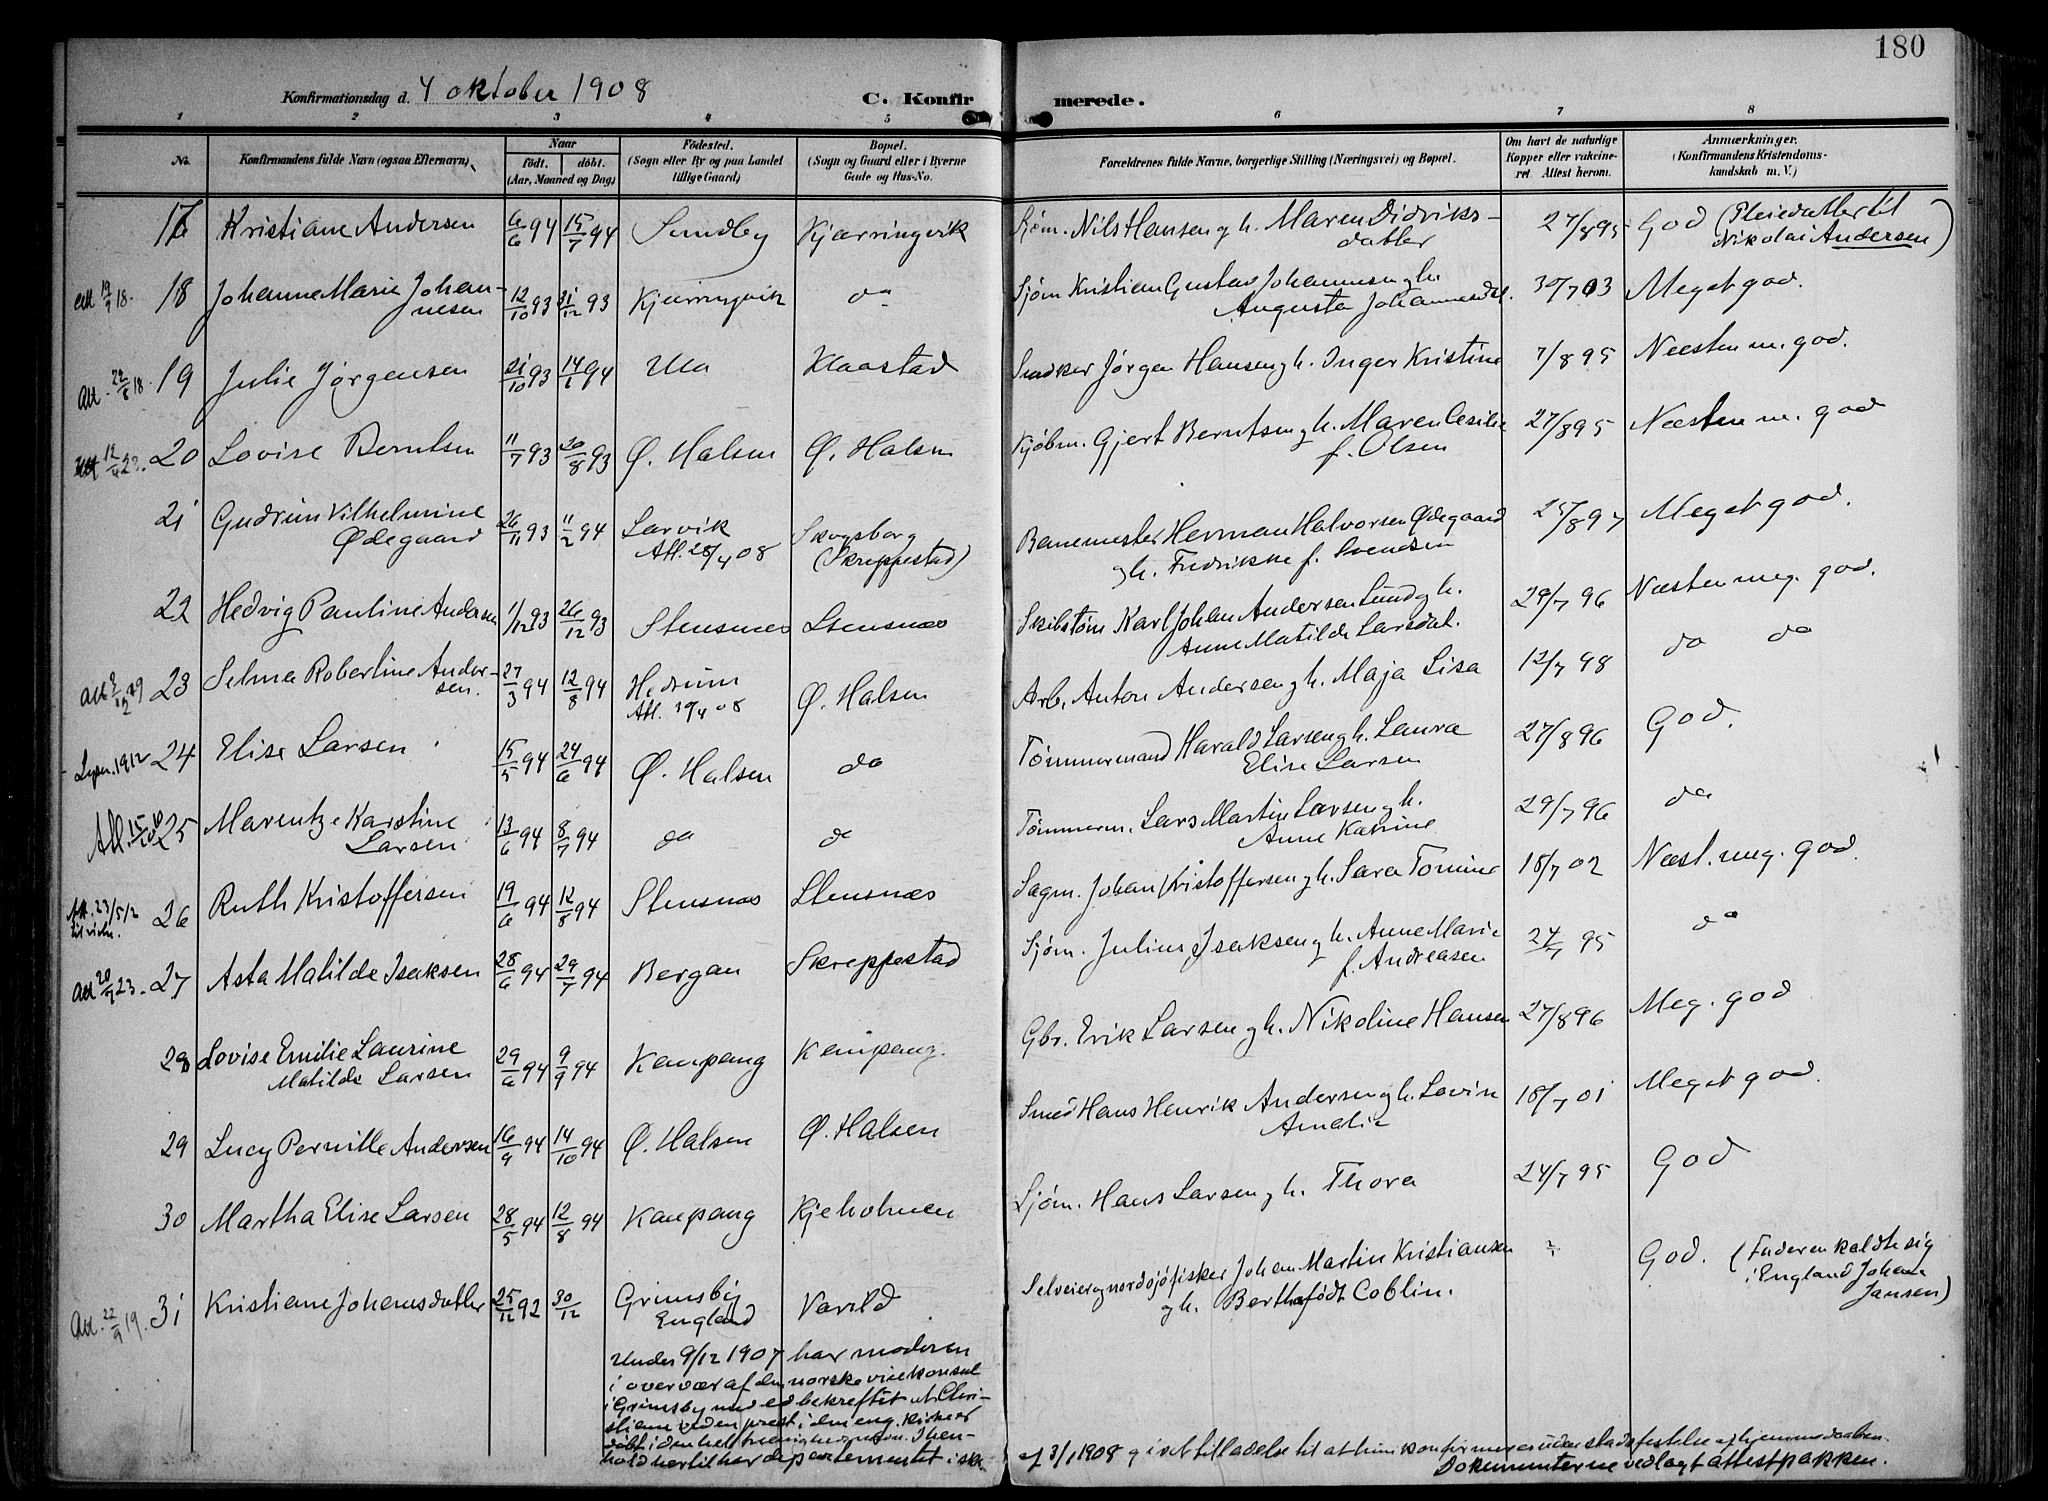 180
Konfirmationsdag d. 4 oktober 1908
C. Konfirmerede.
1 2 3 4 5 6 7 8
No.
Konfirmandens fulde Navn (ogsaa Efternavn).
Naar
födt. döbt.
(Aar, Maaned og Dag)
Födested.
(Sogn eller By og paa Landet
tillige Gaard)
Bopæl.
(Sogn og Gaard eller i Byerne
Gade og Hus-No.
Forældrenes fulde Navne, borgerlige Stilling (Næringsvei) og Bopæl.
Om havt de naturlige
Kopper eller vakcine-
ret Attest herom.
Anmærkninger.
(Konfirmandens Kristendoms-
kundskab m. V.)
17 Kristiane Andersen 6/6 94 15/7 94 Sundby Kjærringvik Sjøm. Nils Hansen og h. Maren Didriks-
datter 27/8 95 God (Pleiedatter til
Nikolai Andersen)
Att 19/9 18. 18 Johanne Marie Johan-
nesen 12/10 93 31/12 93 Kjærringvik do Sjøm Kristian Gustav Johannesen og h.
Augusta Johannesdat. 30/7 03 Meget god.
Att. 22/8 18. 19 Julie Jørgensen 21/10 93 14/1 94 Ula Klaastad Snedker Jørgen Hansen og h. Inger Kristine 7/8 95 Næsten m. god.
Att 12/4 23. 20 Lovise Berntsen 11/7 93 20/8 93 Ø. Halsen Ø. Halsen Kjøbm. Gjert Berntsen og h. Maren Cesilie
f. Olsen 27/8 95 Næsten m. god
21 Gudrun Vilhelmine
Ødegaard 26/11 93 11/2 94 Larvik
Att. 28/4 08 Skogsborg
(Skreppestad) Banemester Herman Halvorsen Ødegaard
og h. Fredrikke f. Svendsen 25/8 97 Meget god.
22 Hedvig Pauline Andersen 1/12 93 26/12 93 Stensnes Stensnæs Skibstøm Karl Johan Andersen Lund og h.
Anne Matilde Larsdat. 29/7 96 Næsten meg. god.
23 Selma Robertine Ander-
sen. 27/3 94 12/8 94 Hedrum
Att. 29/4 08 Ø. Halsen Arb. Anton Andersen og h. Maja Lisa 12/7 98 do do
Lysn. 1912 24 Elise Larsen 15/5 94 24/6 94 Ø. Halsen do Tømmermand Harald Larsen og h. Laura
Elise Larsen 27/8 96 God.
25 Marentze Karstine
Larsen 13/6 94 8/7 94 do do Tømmerm. Lars Martin Larsen og h.
Anne Katrine 29/7 96 do
Att. 23/5 12 26 Ruth Kristoffersen 19/6 94 12/8 94 Stensnæs Stensnæs Sagm. Johan Kristoffersen og h. Sara Tomine 18/7 02 Næst. meg. god.
Att 20/7 23. 27 Asta Matilde Isaksen 28/6 94 29/7 94 Bergan Skreppestad Sjøm. Julius Isaksen og h. Anne Marie
f. Andreasen 24/7 95 do
28 Lovise Emilie Laurine
Matilde Larsen 29/6 94 9/9 94 Kaupang Kaupang. Gbr. Erik Larsen og h. Nikoline Hansen 27/8 96 Meg. god
29 Lucy Pernille Andersen 16/9 94 14/10 94 Ø. Halsen Ø. Halsen Smed Hans Henrik Andersen og h. Lovise
Amalie 18/7 01 Meget god.
30 Martha Elise Larsen 28/5 94 12/8 94 Kaupang Kjeholmen Sjøm. Hans Larsen og h. Thora 24/7 95 God
Att. 22/9 19. 31 Kristiane Johansdatter 25/12 92 30/12 Grimsby
England Varild Selveier og nordsjöfisker Johan Martin Kristiansen
og h. Bertha født Coblin. God. (Faderen kaldte sig
i England Johan
Jansen)
Under 9/12 1907 har moderen
i overvær af den norske visekonsul
i Grimsby med ed bekreftet at Chri-
stiane ved en prest i den eng. kirke er
døbt i den hel. treenigheds navn. I hen-
hold hertil har departementet i skr.
af 3/1 1908 givet tilladelse til at hun konfirmeres uden stadfestelse af hjemmedaaben.
Dokumenterne vedlagt attestpakken.